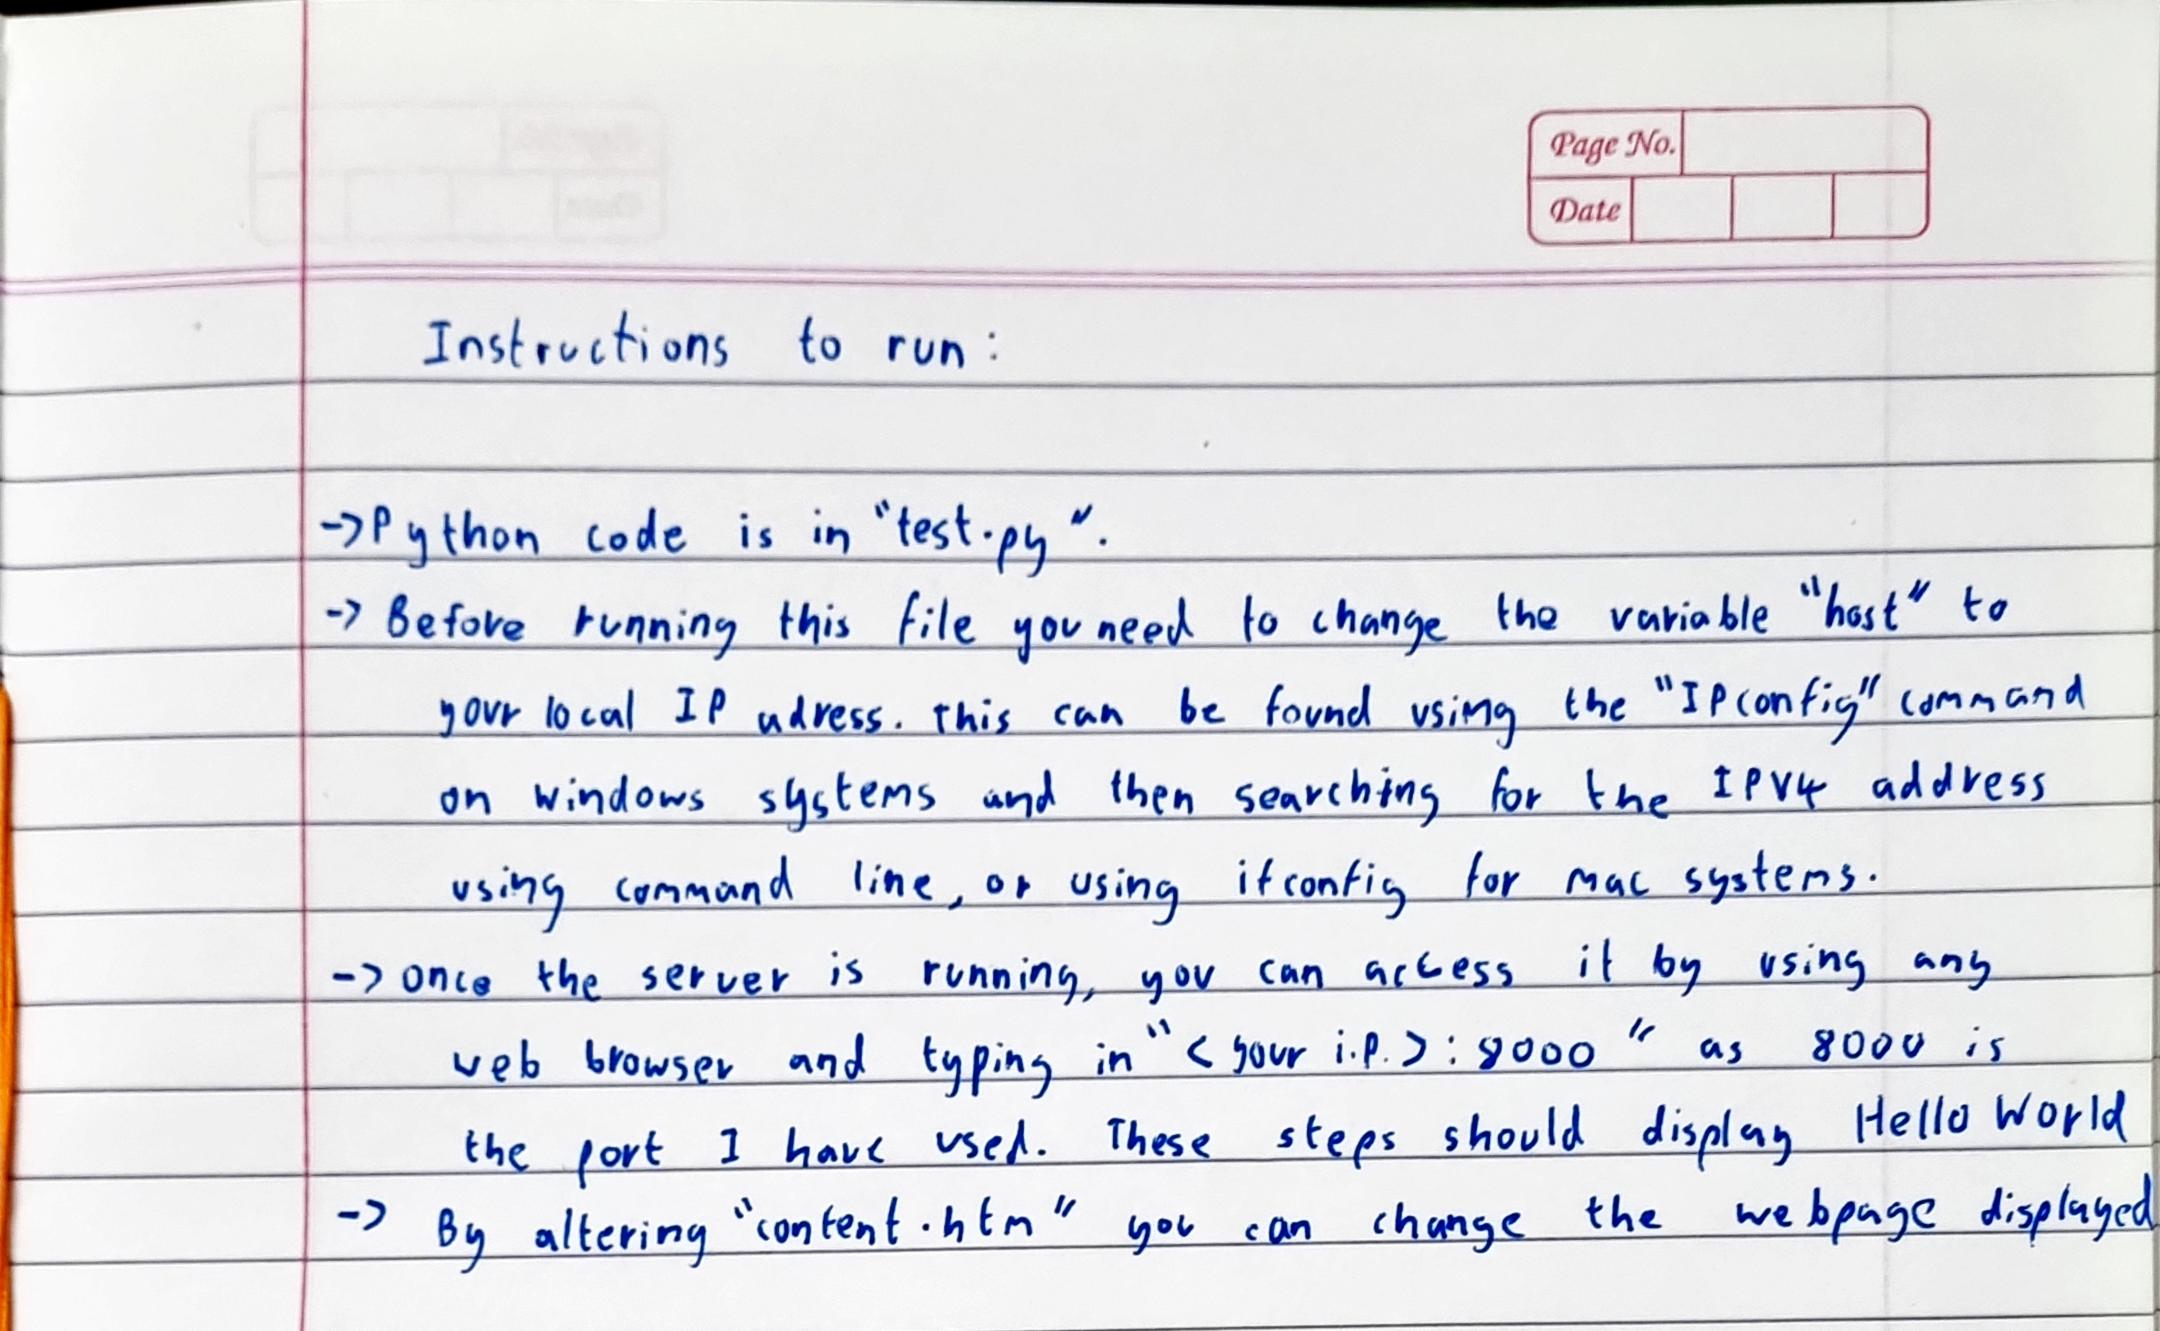 Page No.
Date
Instructions to run:
->Python code is in "test.py".
-> Before running this file you need to change the variable "host" to
your local IP adress. This can be found using the "IPconfig" command
on windows systems and then searching for the IPV4 address
using command line, or using ifconfig for mac systems.
-> once the server is running, you can access it by using any
web browser and typing in "<your i.p.>:8000" as 8000 is
the port I have used. These steps should display Hello World
-> By altering "content.htm" you can change the webpage displayed